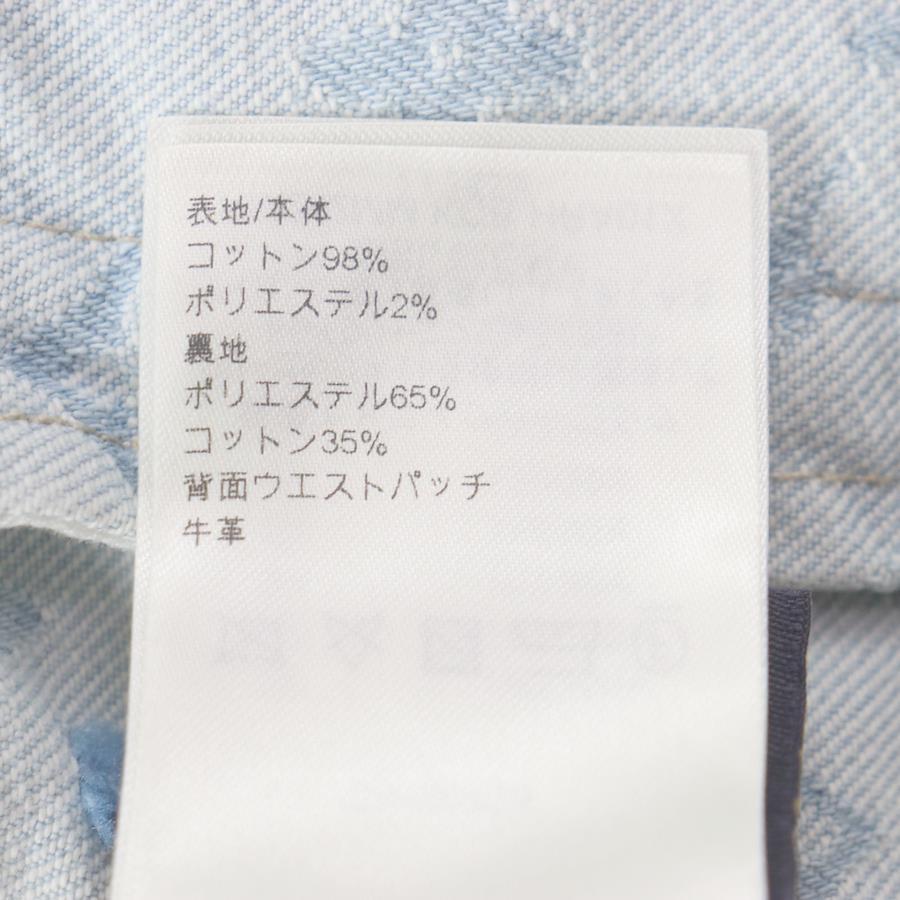 表地/本体
コットン98%
ポリエステル2%
裏地
ポリエステル65%
コットン35%
背面ウエストパッチ
牛革